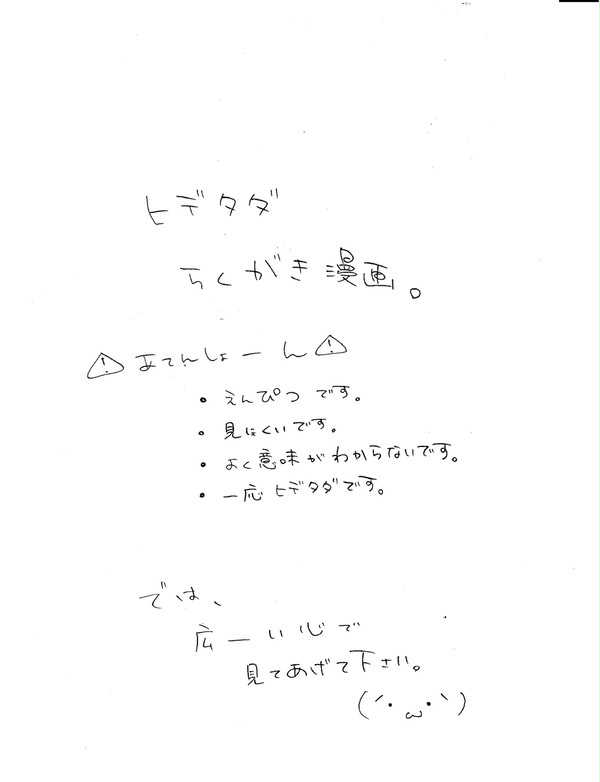 ヒデタダ
らくがき漫画。
⚠あてんしょーん⚠
・えんぴつです。
・見にくいです。
・よく意味がわからないです。
・一応ヒデタダです。
では、
広ーい心で
見てあげて下さい。
(´・ω・`)